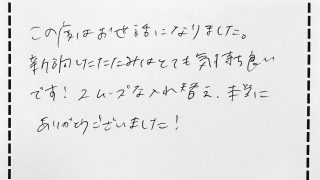 この度はお世話になりました。
新しいたたみはとても気持ち良い
です！スムーズな入れ替え、本当に
ありがとうございました！